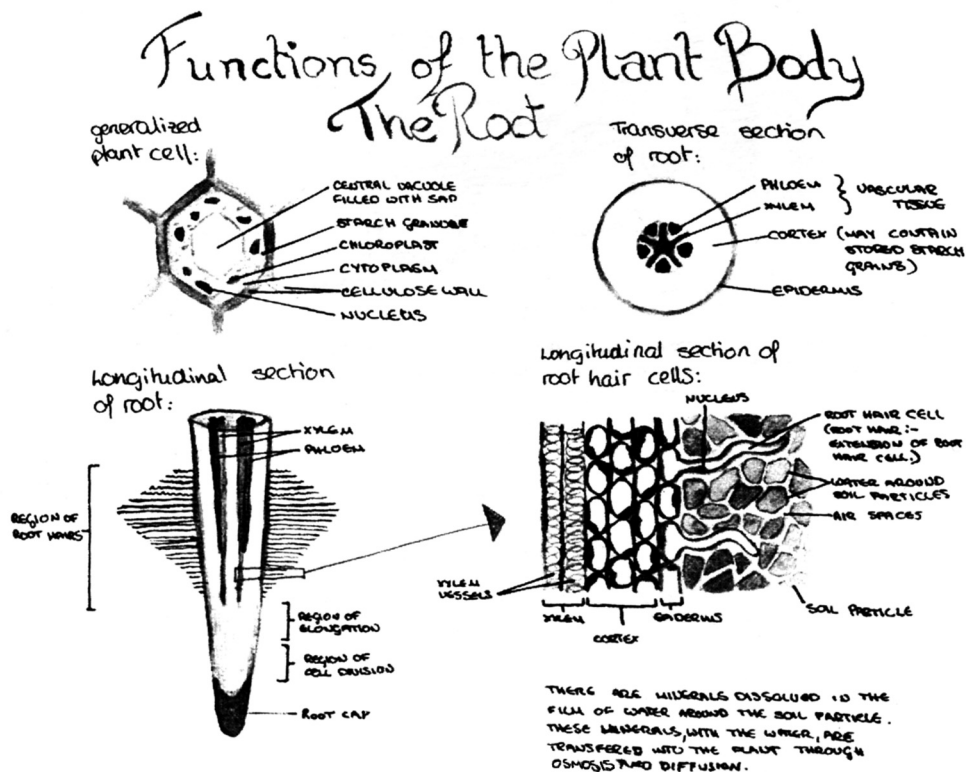 Functions of the Plant Body
The Root
generalized
plant cell:
CENTRAL VACUOLE
FILLED WITH SAP
STARCH GRANULE
CHLOROPLAST
CYTOPLASM
CELLULOSE WALL
NUCLEUS
Transverse section
of root:
PHLOEM
XYLEM
VASCULAR
TISSUE
CORTEX (MAY CONTAIN
STORED STARCH
GRAINS)
EPIDERMIS
Longitudinal section
of root:
XYLEM
PHLOEM
REGION OF
ROOT HAIRS
REGION OF
ELONGATION
REGION OF
CELL DIVISION
ROOT CAP
Longitudinal section of
root hair cells:
NUCLEUS
ROOT HAIR CELL
(ROOT HAIR :-
EXTENSION OF ROOT
HAIR CELL.)
WATER AROUND
SOIL PARTICLES
AIR SPACES
SOIL PARTICLE
XYLEM
VESSELS
XYLEM
CORTEX
EPIDERMIS
THERE ARE MINERALS DISSOLVED IN THE
FILM OF WATER AROUND THE SOIL PARTICLE.
THESE MINERALS, WITH THE WATER, ARE
TRANSFERED INTO THE PLANT THROUGH
OSMOSIS AND DIFFUSION.